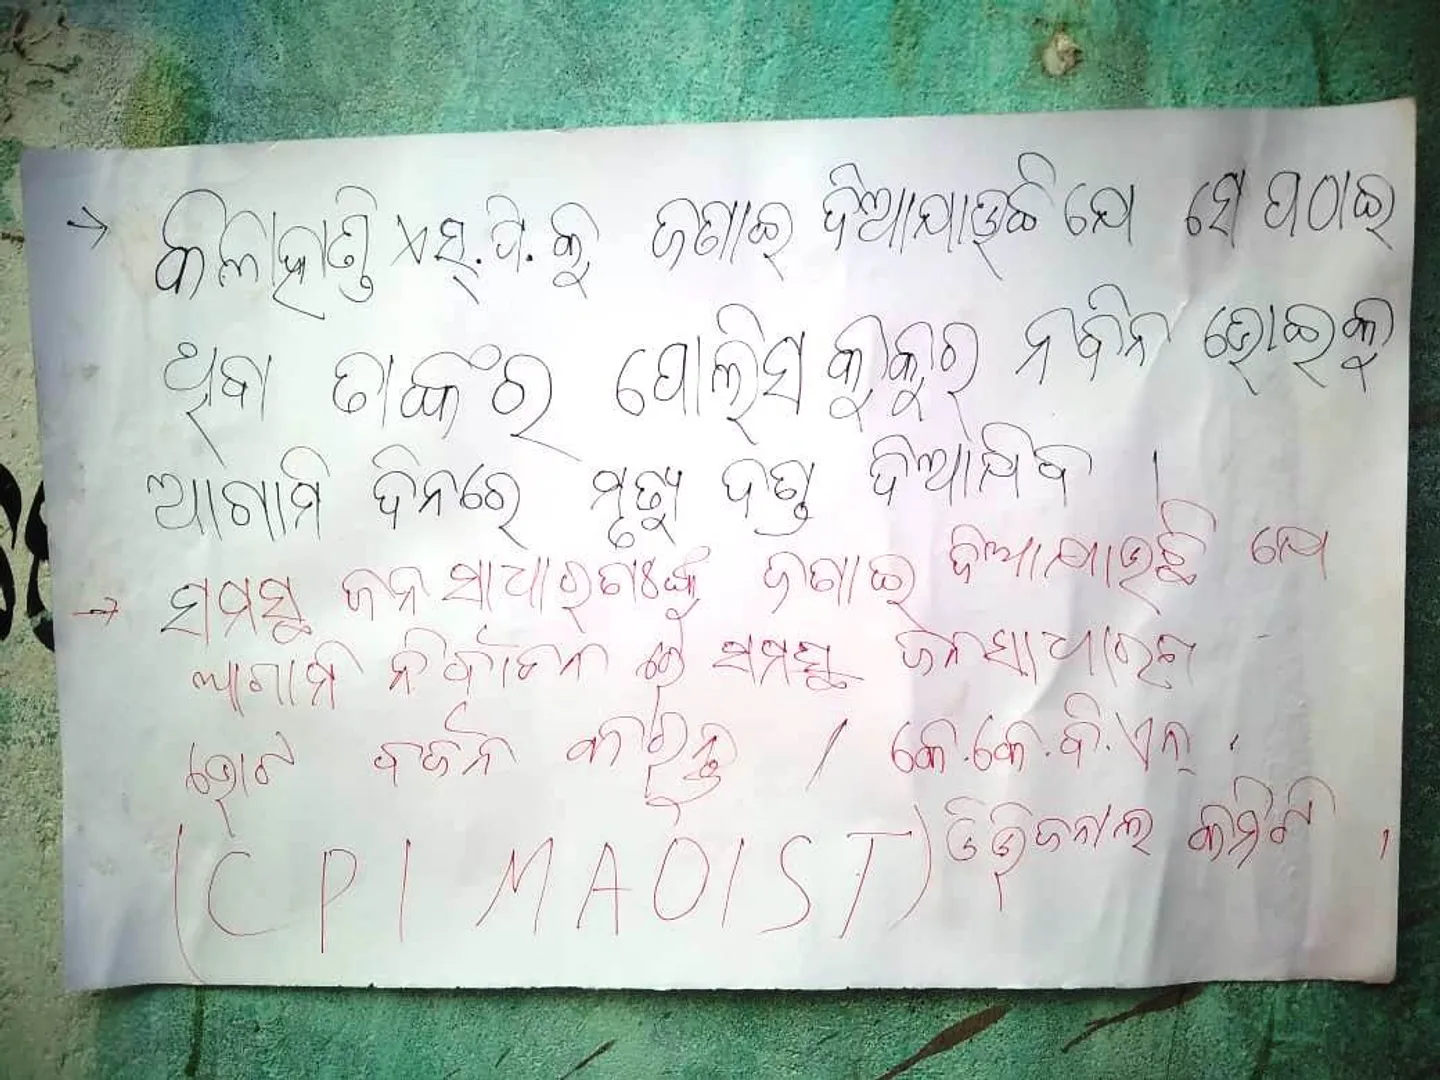 → କଳାହାଣ୍ଡି ଏସ୍.ପି.କୁ ଜଣାଇ ଦିଆଯାଉଛି ଯେ ସେ ପଠାଇ
ଥିବା ତାଙ୍କର ପୋଲିସ କୁକୁର ନବିନ ଭୋଇକୁ
ଆଗାମି ଦିନରେ ମୃତ୍ୟୁ ଦଣ୍ଡ ଦିଆଯିବ ।
→ ସମସ୍ତ ଜନସାଧାରଣଃଙ୍କୁ ଜଣାଇ ଦିଆଯାଉଛି ଯେ
ଆଗାମି ନିର୍ବାଚନ ରେ ସମସ୍ତ ଜନସାଧାରଣ
ଭୋଟ ବର୍ଜନ କରନ୍ତୁ / କେ.କେ.ବି.ଏନ୍.
(CPI MAOIST) ଡିଭିଜନାଲ କମିଟି ,